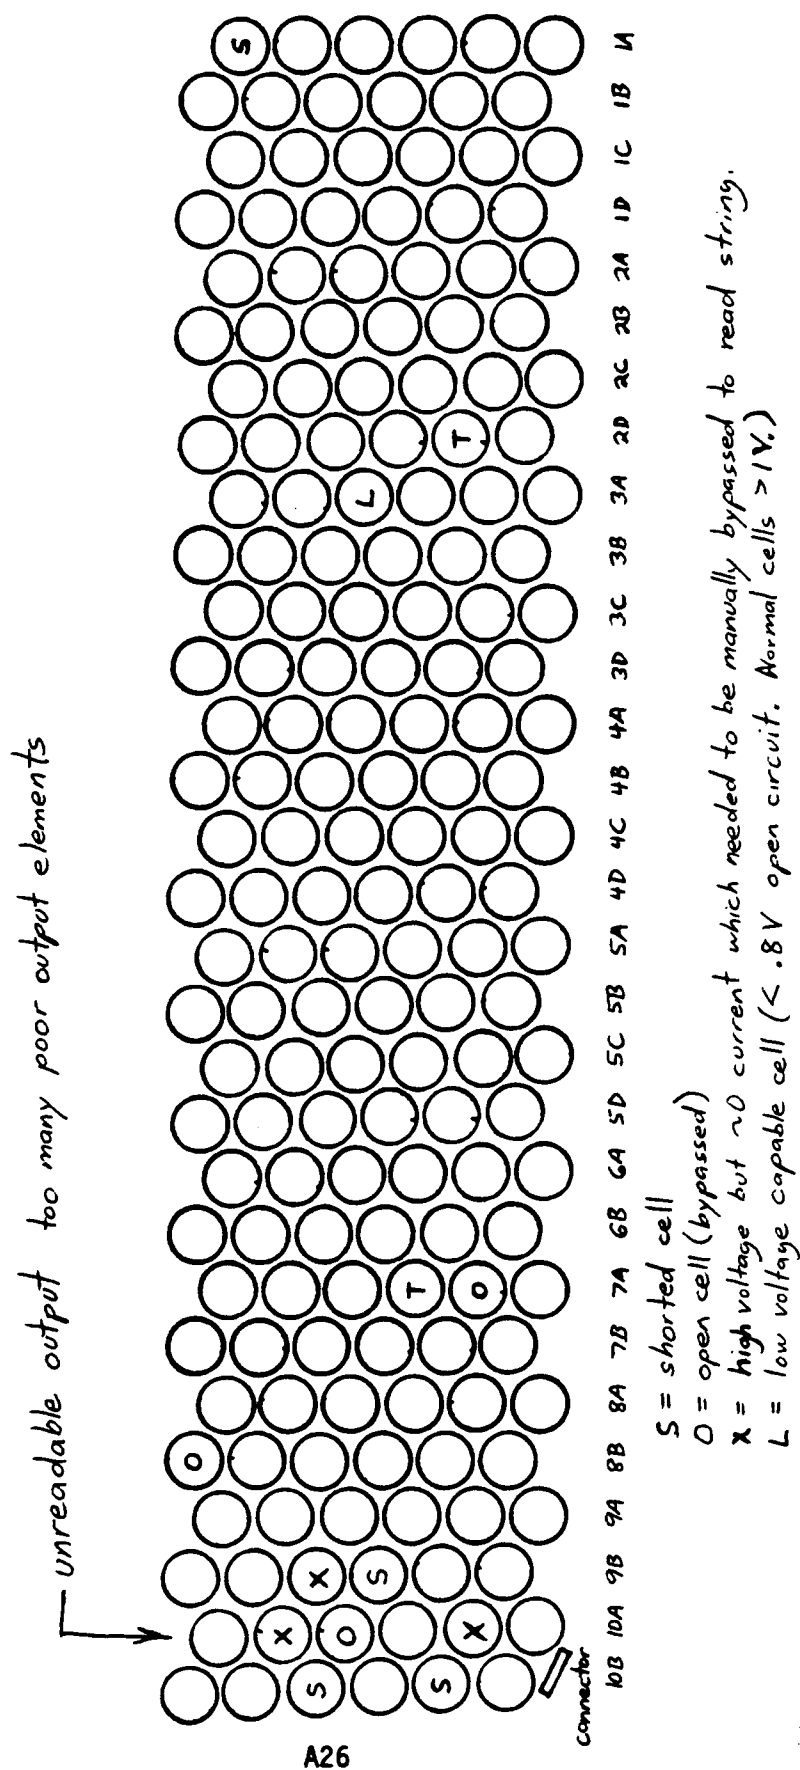 unreadable output too many poor output elements
O
S
X
S X
O L
S
T
S T
X O
connector
10B 10A 9B 9A 8B 8A 7B 7A 6B 6A 5D 5C 5B 5A 4D 4C 4B 4A 3D 3C 3B 3A 2D 2C 2B 2A 1D 1C 1B 1A
S = shorted cell
O = open cell (bypassed)
X = high voltage but ~0 current which needed to be manually bypassed to read string.
L = low voltage capable cell (< .8V open circuit. Normal cells >1V.)
A26